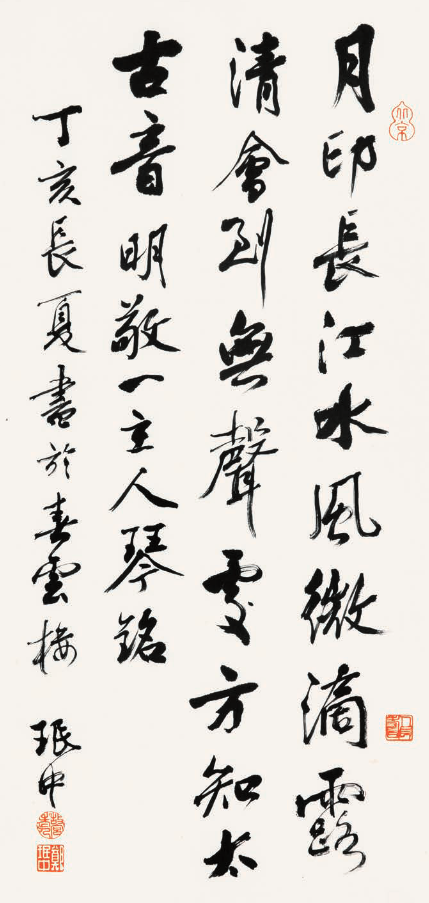 月印長江水風微滴露
清會到無聲處方知太
古音明敬一主人琴銘
丁亥長夏書於春雲樓 珉中